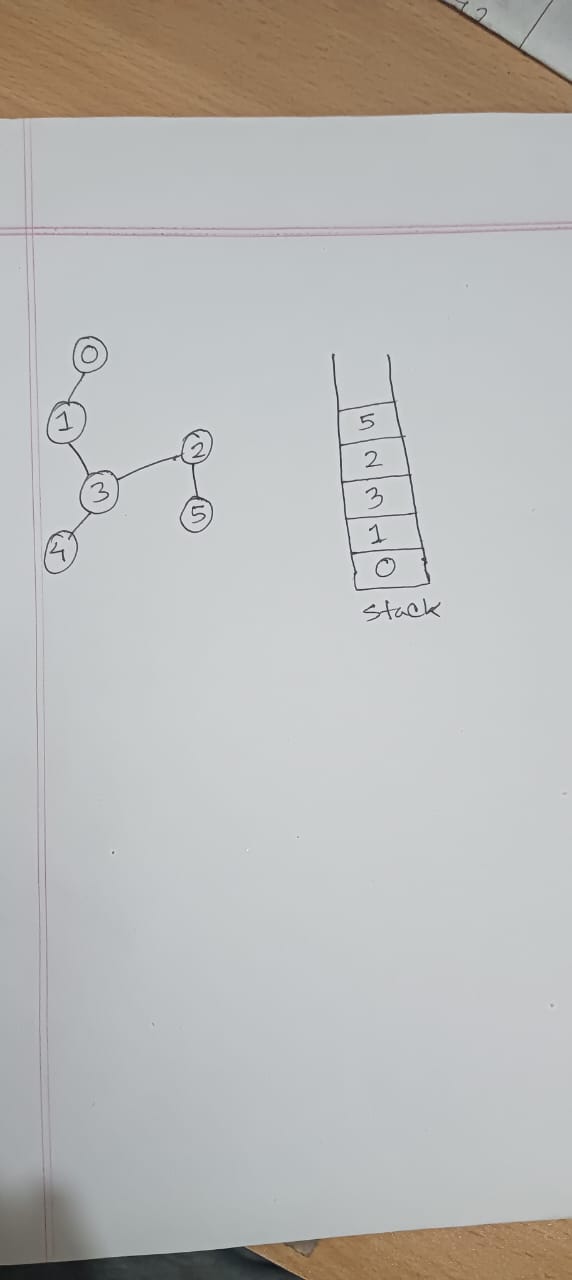 0
1
2
3
5
4
5
2
3
1
0
stack